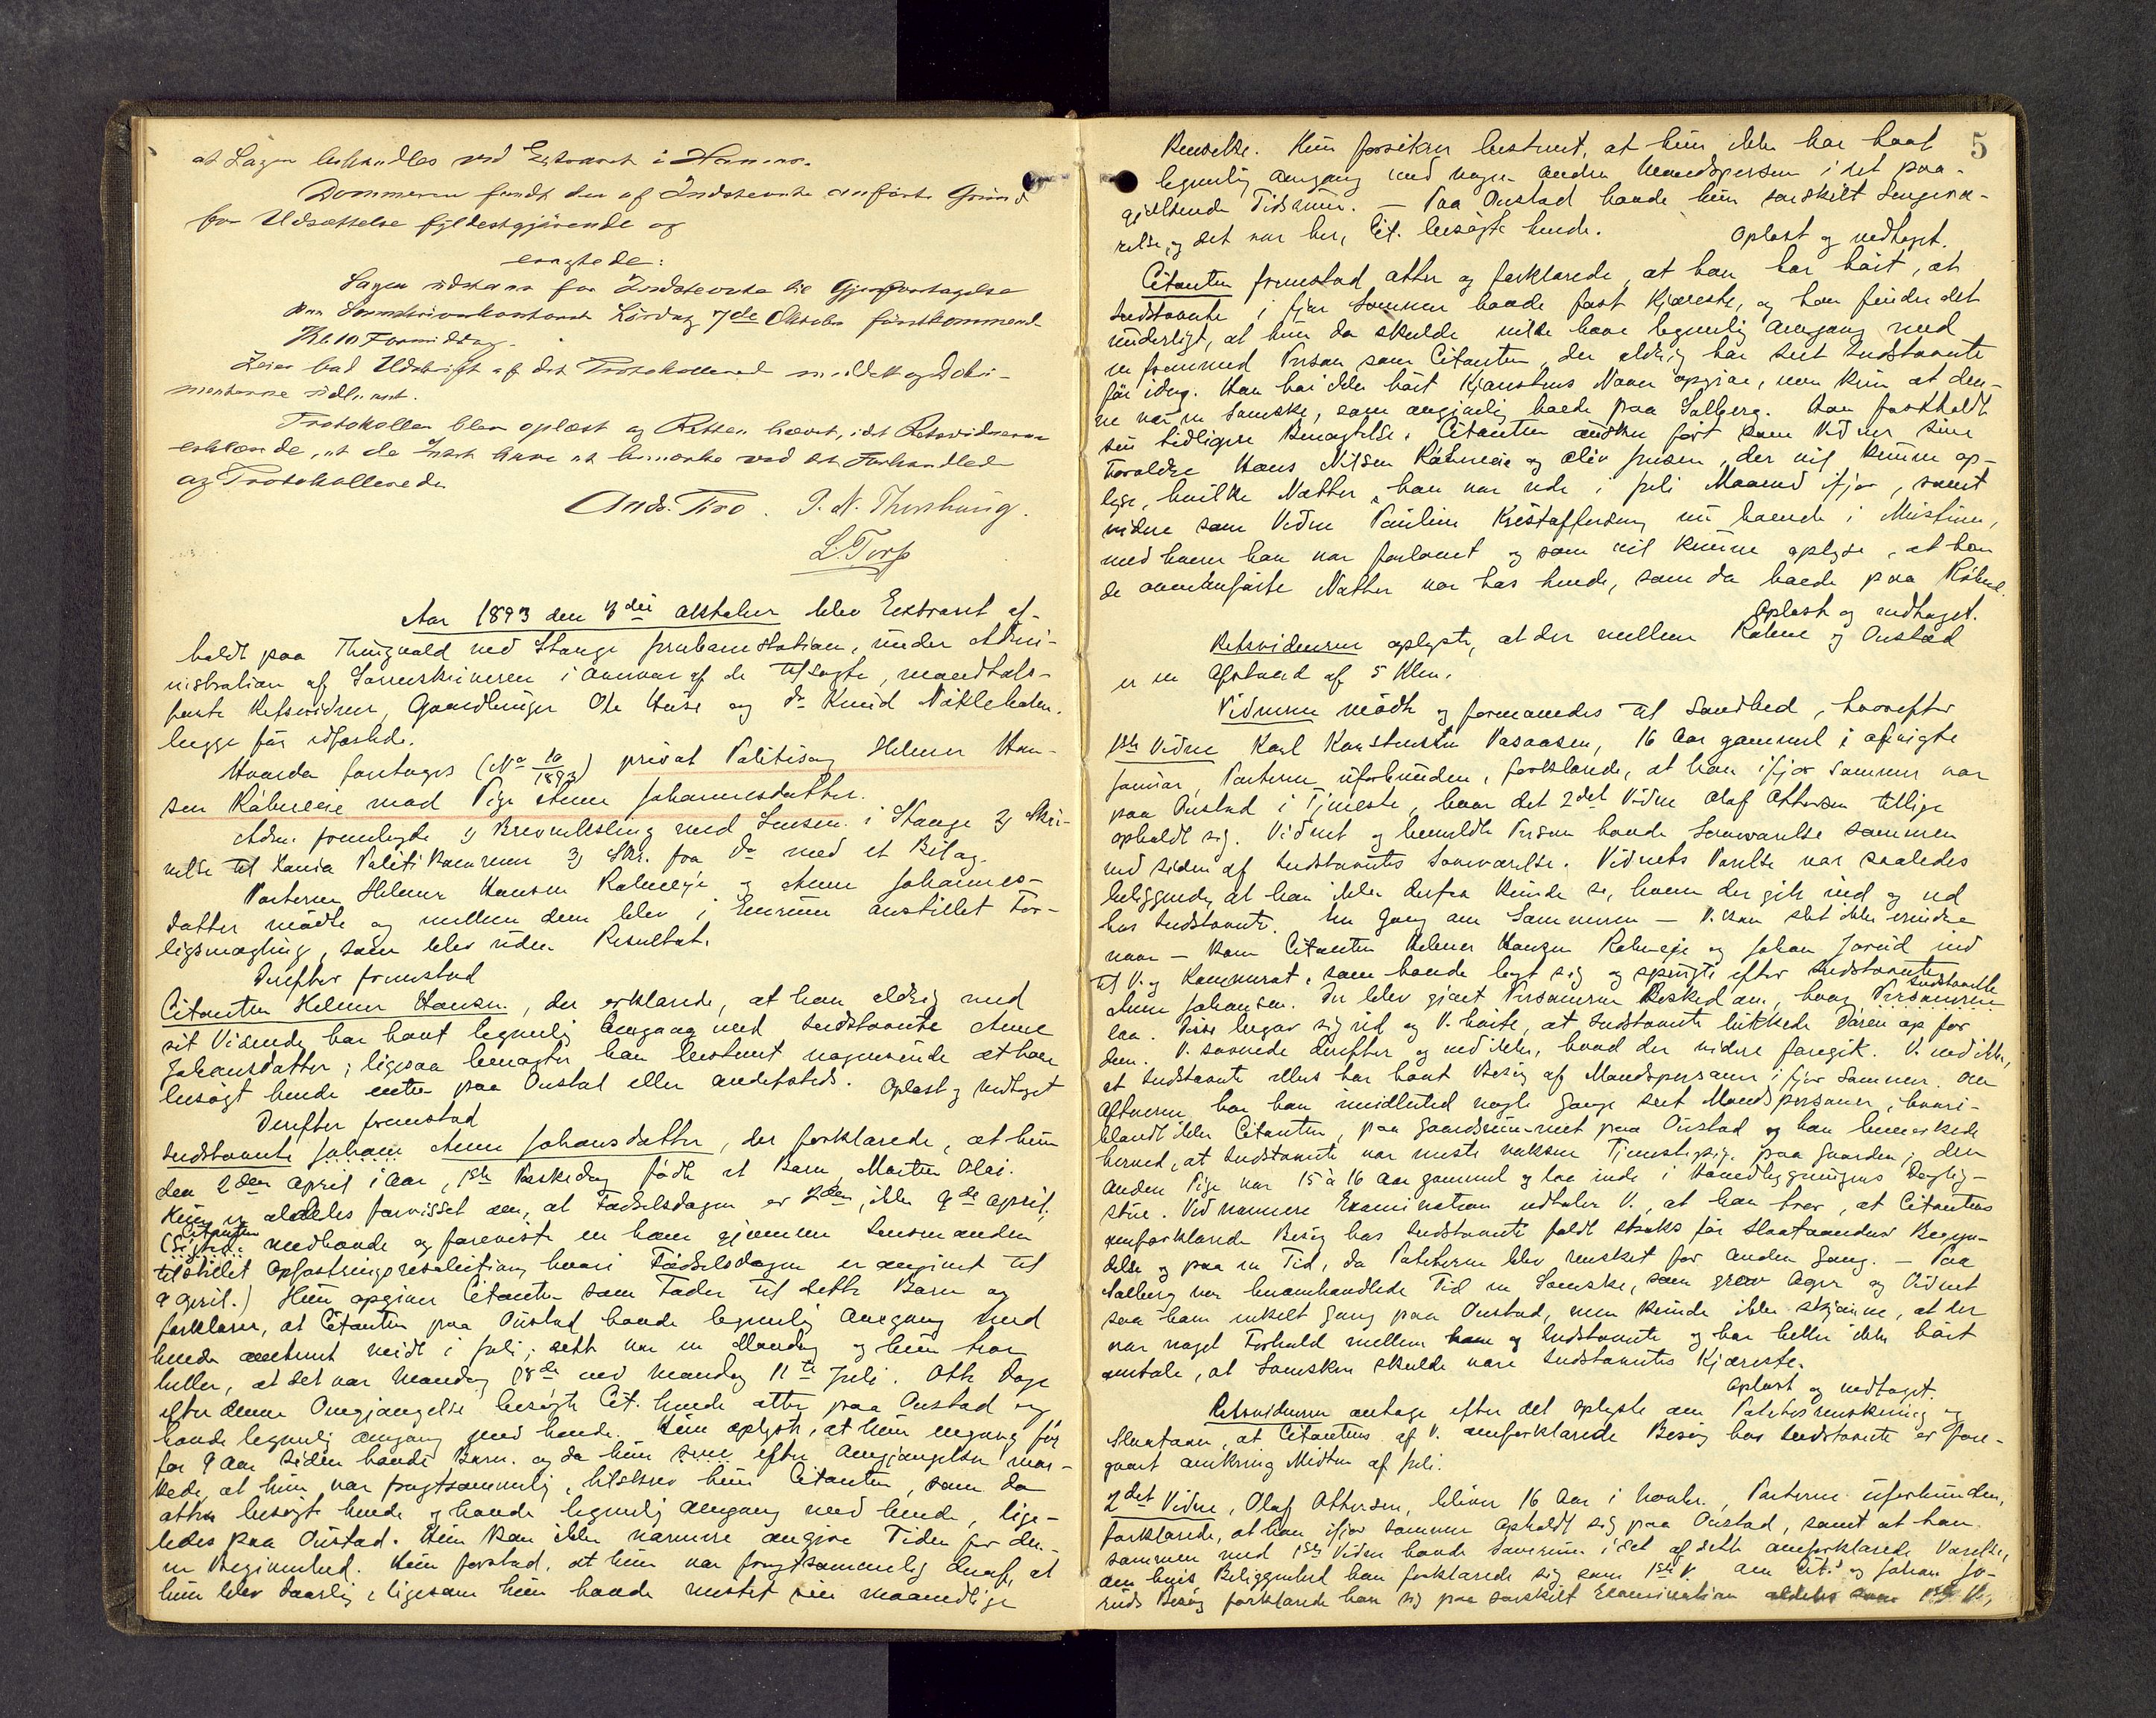 at Sagen behandles ved Extraret i Hamar.
Dommeren fandt den af Indstevnte anførte Grund
for Udsættelse fyldestgjørende og
eragtede:
Sagen udsættes for Indstevnte til Gjenforetagelse
paa Sorenskriverkontoret Lørdag 7de Oktober førstkommende
Kl. 10 Formiddag.
bad Udskrift af det Protokollerede meddelt og Doku-
menterne udlaant.
Protokollen blev oplæst og Retten hævet, idet Retsvidnerne
erklærede, at de Intet have at bemærke ved det Forhandlede
og Protokollerede
Ands. Tiro. P. N. Thorshaug.
L. Torp
Aar 1893 den 3die Oktober blev Extraret af-
holdt paa Thingvold ved Stange Jernbanestation, under Admi-
nistration af Sorenskriveren i Overvær af de tilsagte, mandtals-
førte Retsvidner, Gaardbruger Ole Huse og do Knud Nökleholm,
begge før edfæstede.
Hvorda foretages (No 10/1893) privat Politisag Helmer Han-
sen Råhneeie mod Pige Anne Johannesdatter.
Adm. fremlagde 1) Brevvexling med Lensm. i Stange 2) Skri-
velse til Xania Politikammer 3) Skr. fra do med et Bilag.
Parterne Helmer Hansen Rahneeje og Anne Johannes-
datter mødte og mellem dem blev i Enrum anstillet For-
ligsmægling, som blev uden Resultat.
Derefter fremstod
Citanten Helmer Hansen, der erklærede, at han aldrig med
sit Vidende har havt legemlig Omgang med Indstævnte Anne
Johansdatter; ligesaa benægter han bestemt nogensinde at have
besøgt hende enten paa Onstad eller andetsteds. Oplæst og vedtaget
Derefter fremstod
Indstævnte Johan Anne Johansdatter, der forklarede, at hun
den 2den April i Aar, 1ste Paaskedag fødte et Barn, Martin Olai.
Hun er aldeles forvisset om, at Fødselsdagen er 2den, ikke 9de April,
Citanten
(Sigtede medhavde og foreviste en ham gjennem Lensmanden
tilstillet Opfostringsresolution, hvori Fødselsdagen er angivet til
9 April.) Hun opgiver Citanten som Fader til dette Barn og
forklarer, at Citanten paa Onstad havde legemlig Omgang med
hende omtrent midt i Juli; dette var en Mandag og hun tror
heller, at det var Mandag 18de end Mandag 11te Juli. Otte Dage
efter denne Omgjængelse besøgte Cit. hende atter paa Onstad og
havde legemlig Omgang med hende. Hun oplyste, at hun engang før
for 9 Aar siden havde Barn. og da hun snart efter Omgjængelsen mær-
kede, at hun var frugtsommelig, tilskrev hun Citanten, som da
atter besøgte hende og havde legemlig Omgang med hende, lige-
ledes paa Onstad. Hun kan ikke nærmere angive Tiden for den-
ne Begivenhed. Hun forstod, at hun var frugtsommelig deraf, at
hun blev daarlig, ligesom hun havde mistet sin maanedlige
5
Renselse. Hun forsikrer bestemt, at hun ikke har havt
legemlig Omgang med nogen anden Mandsperson i det paa-
gjældende Tidsrum. – Paa Onstad havde hun særskilt Sengevæ-
relse, og det var her, Cit. besøgte hende. Oplæst og vedtaget.
Citanten fremstod atter og forklarede, at han har hørt, at
Indstævnte i fjor Sommer havde fast Kjæreste, og han finder det
underligt, at hun da skulde ville have legemlig Omgang med
en fremmed Person som Citanten, der aldrig har seet Indstævnte
før idag. Han har ikke hørt Kjærestens Navn opgive, men kun at den-
ne var en Svenske, som angivelig boede paa Solberg. Han fastholdt
sin tidligere Benægtelse. Citanten ønsker ført som Vidner sine
Forældre Hans Nilsen Råhneeie og Oliv Jensen, der vil kunne op-
lyse, hvilke Nætter, han var ude i Juli Maaned ifjor, samt
videre som Vidne Pauline Kristoffersen, nu boende i
med hvem han var forlovet og som vil kunne oplyse, at han
de ommeldte Nætter var hos hende, som da boede paa Råhne.
Oplæst og vedtaget.
Retsvidnerne oplyste, at der mellem Rahne og Onstad
er en Afstand af 5 Klm.
Vidnerne mødte og formanedes til Sandhed, hvorefter
1ste Vidne Karl Konstantin Vasaasen, 16 Aar gammel i afvigte
Januar, Parterne uforbunden, forklarede, at han ifjor Sommer var
paa Onstad i Tjeneste, hvor det 2det Vidne Olaf Ottersen tillige
opholdt sig. Vidnet og bemeldte Person havde Soveværelse sammen
ved siden af Indstævntes Soveværelse. Vidnets Værelse var saaledes
beliggende, at han ikke derfra kunde se, hvem der gik ind og ud
hos Indstævnte. En Gang om Sommeren – V. kan slet ikke erindre
naar – kom Citanten Helmer Hansen Rahneeje og Johan Jorud ind
til V. og Kammerat, som havde lagt sig og spurgte efter Indstævnte
Indstævnte
Anne Johansen. Der blev givet Personerne Besked om, hvor Personerne
laa. Disse begav sig ud og V. hørte, at Indstævnte lukkede Døren op for
dem. V. sovnede derefter og ved ikke, hvad der videre foregik. V. ved ikke,
at Indstævnte ellers har havt Besøg af Mandspersoner i fjor Sommer. Om
Aftenerne har han imidlertid nogle Gange seet Mandspersoner, hvori-
blandt ikke Citanten, paa Gaardsrummet paa Onstad og han bemærkede
herved, at Indstævnte var eneste voksne Tjenestepige paa Gaarden; den
anden Pige var 15 à 16 Aar gammel og laa inde i Hovedbygningens Daglig-
stue. Ved nærmere Examination udtaler V., at han tror, at Citantens
omforklarede Besøg hos Indstævnte faldt straks før Slaataannens Begyn-
delse og paa en Tid, da Poteterne blev rensket for anden Gang. – Paa
Solberg var omhandlede Tid en Svenske, som grov Ager og Vidnet
saa ham enkelt Gang paa Onstad, men kunde ikke skjønne, at der
var noget Forhold mellem ham og Indstævnte og har heller ikke hørt
omtale, at Svensken skulde være Indstævntes Kjæreste.
Oplæst og vedtaget.
Retsvidnerne antage efter det oplyste om Potetesrenskning og
Slaataan, at Citantens af V. omforklarede Besøg hos Indstævnte er fore-
gaaet omkring Midten af Juli.
2det Vidne, Olaf Ottersen, bliver 16 Aar i Novbr., Parterne uforbunden,
forklarede, at han ifjor Sommer opholdt sig paa Onstad, samt at han
sammen med 1ste Vidne havde Soverum i det af dette omforklarede Værelse,
om hvis Beliggenhed han forklarede sig som 1ste V. Om Cit.s og Johan Jo-
ruds Besøg forklarede han sig paa særskilt Examination aldeles som 1ste V.,